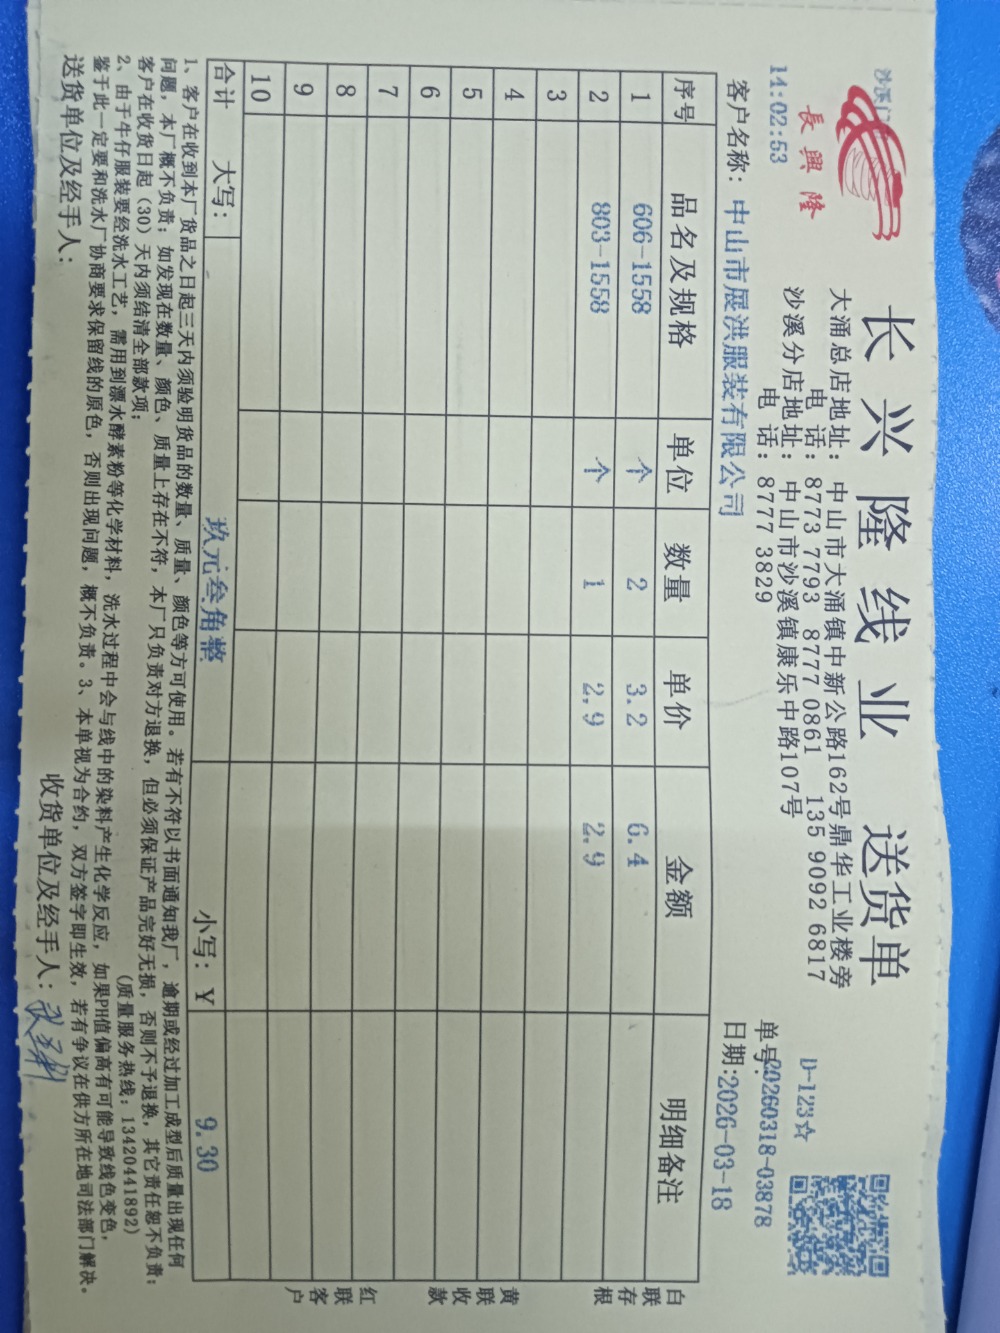 長興隆
长兴隆线业 送货单
沙溪
14:02:53
大涌总店地址: 中山市大涌镇中新公路162号鼎华工业楼旁
电 话: 8773 7793 8777 0861 135 9092 6817
沙溪分店地址: 中山市沙溪镇康乐中路107号
电 话: 8777 3829
D-123☆
单号:20260318-03878
客户名称: 中山市展洪服装有限公司 日期:2026-03-18
序号 品名及规格 单位 数量 单价 金额 明细备注
1 606-1558 个 2 3.2 6.4
2 803-1558 个 1 2.9 2.9
3
4
5
6
7
8
9
10
合计 大写: 玖元叁角整 小写: ¥ 9.30
白联存根
黄联收款
红联客户
1、客户在收到本厂货品之日起三天内须验明货品的数量、质量、颜色等方可使用。若有不符以书面通知我厂,逾期或经过加工成型后质量出现任何
问题,本厂概不负责;如发现在数量、颜色、质量上存在不符,本厂只负责对方退换,但必须保证产品完好无损,否则不予退换,其它责任恕不负责;
客户在收货日起(30)天内须结清全部款项; (质量服务热线:13420441892)
2、由于牛仔服装要经洗水工艺,需用到漂水酵素粉等化学材料,洗水过程中会与线中的染料产生化学反应,如果PH值偏高有可能导致线色变色,
鉴于此一定要和洗水厂协商要求保留线的原色,否则出现问题,概不负责。3、本单视为合约,双方签字即生效,若有争议在供方所在地司法部门解决。
送货单位及经手人: 收货单位及经手人: